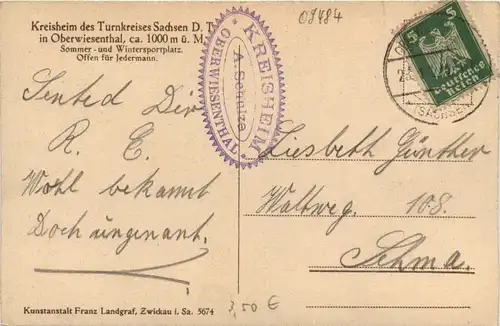 Kreisheim des Turnkreises Sachsen D. T.
in Oberwiesenthal, ca. 1000 m ü. M.
Sommer- und Wintersportplatz.
Offen für Jedermann.
08484
KREISHEIM
A. Schulze
OBERWIESENTHAL
5 5
Deutsches
Reich
(SACHSEN)
Sented Dir
R. E.
Wohl bekannt
Doch ungenant.
Liesbeth Günther
Waltweg. 108.
Sehma.
Kunstanstalt Franz Landgraf, Zwickau i. Sa. 5674
3,50 €